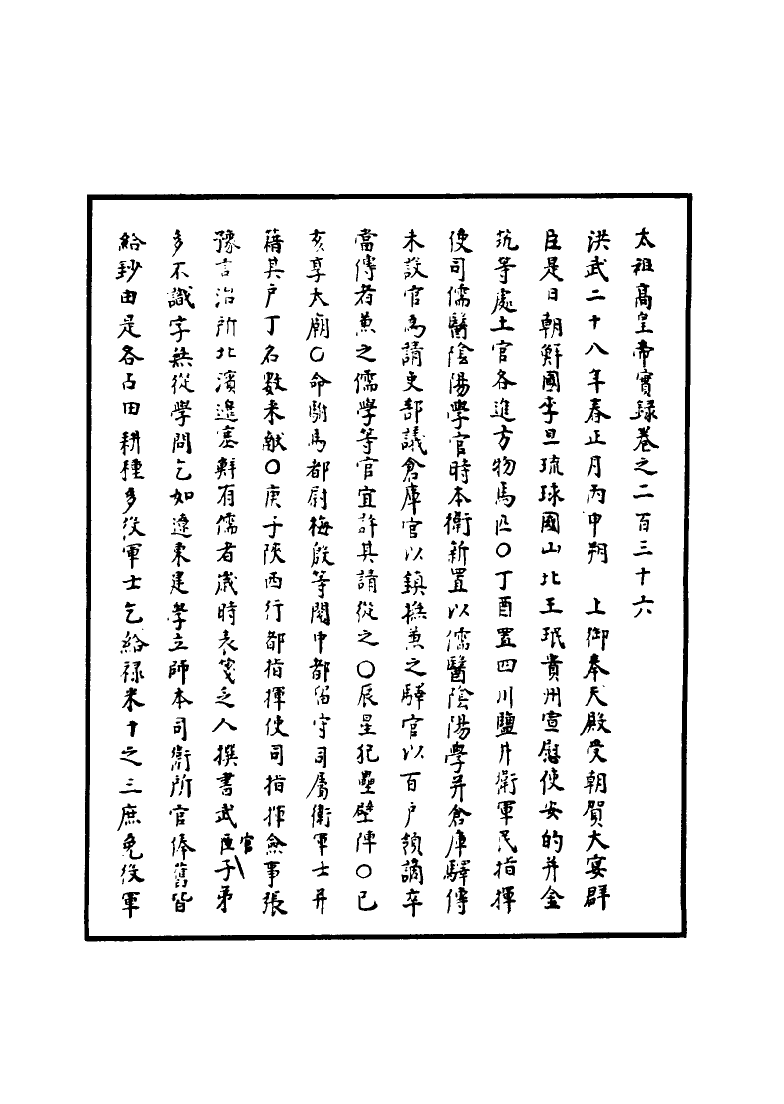 太祖高皇帝實錄卷之二百三十六
洪武二十八年春正月丙申朔　上御奉天殿受朝賀大宴群
臣是日朝鮮國李旦琉球國山北王珉貴州宣慰使安的并金
筑等處土官各進方物馬匹○丁酉置四川鹽井衛軍民指揮
使司儒醫陰陽學官時本衛新置以儒醫陰陽學并倉庫驛傳
未設官為請吏部議倉庫官以鎮撫兼之驛官以百戶領謫卒
當傳者兼之儒學等官宜許其請從之○辰星犯壘壁陣○己
亥享太廟○命駙馬都尉梅殷等閱中都留守司屬衛軍士并
藉其戶丁名數来献○庚子陝西行都指揮使司指揮僉事張
豫言治所北濱邊塞鮮有儒者歲時表箋乏人撰書武臣官子弟
多不識字無從學問乞如遼東建學立師本司衛所官俸舊皆
給鈔由是各占田耕種多役軍士乞給祿米十之三庶免役軍